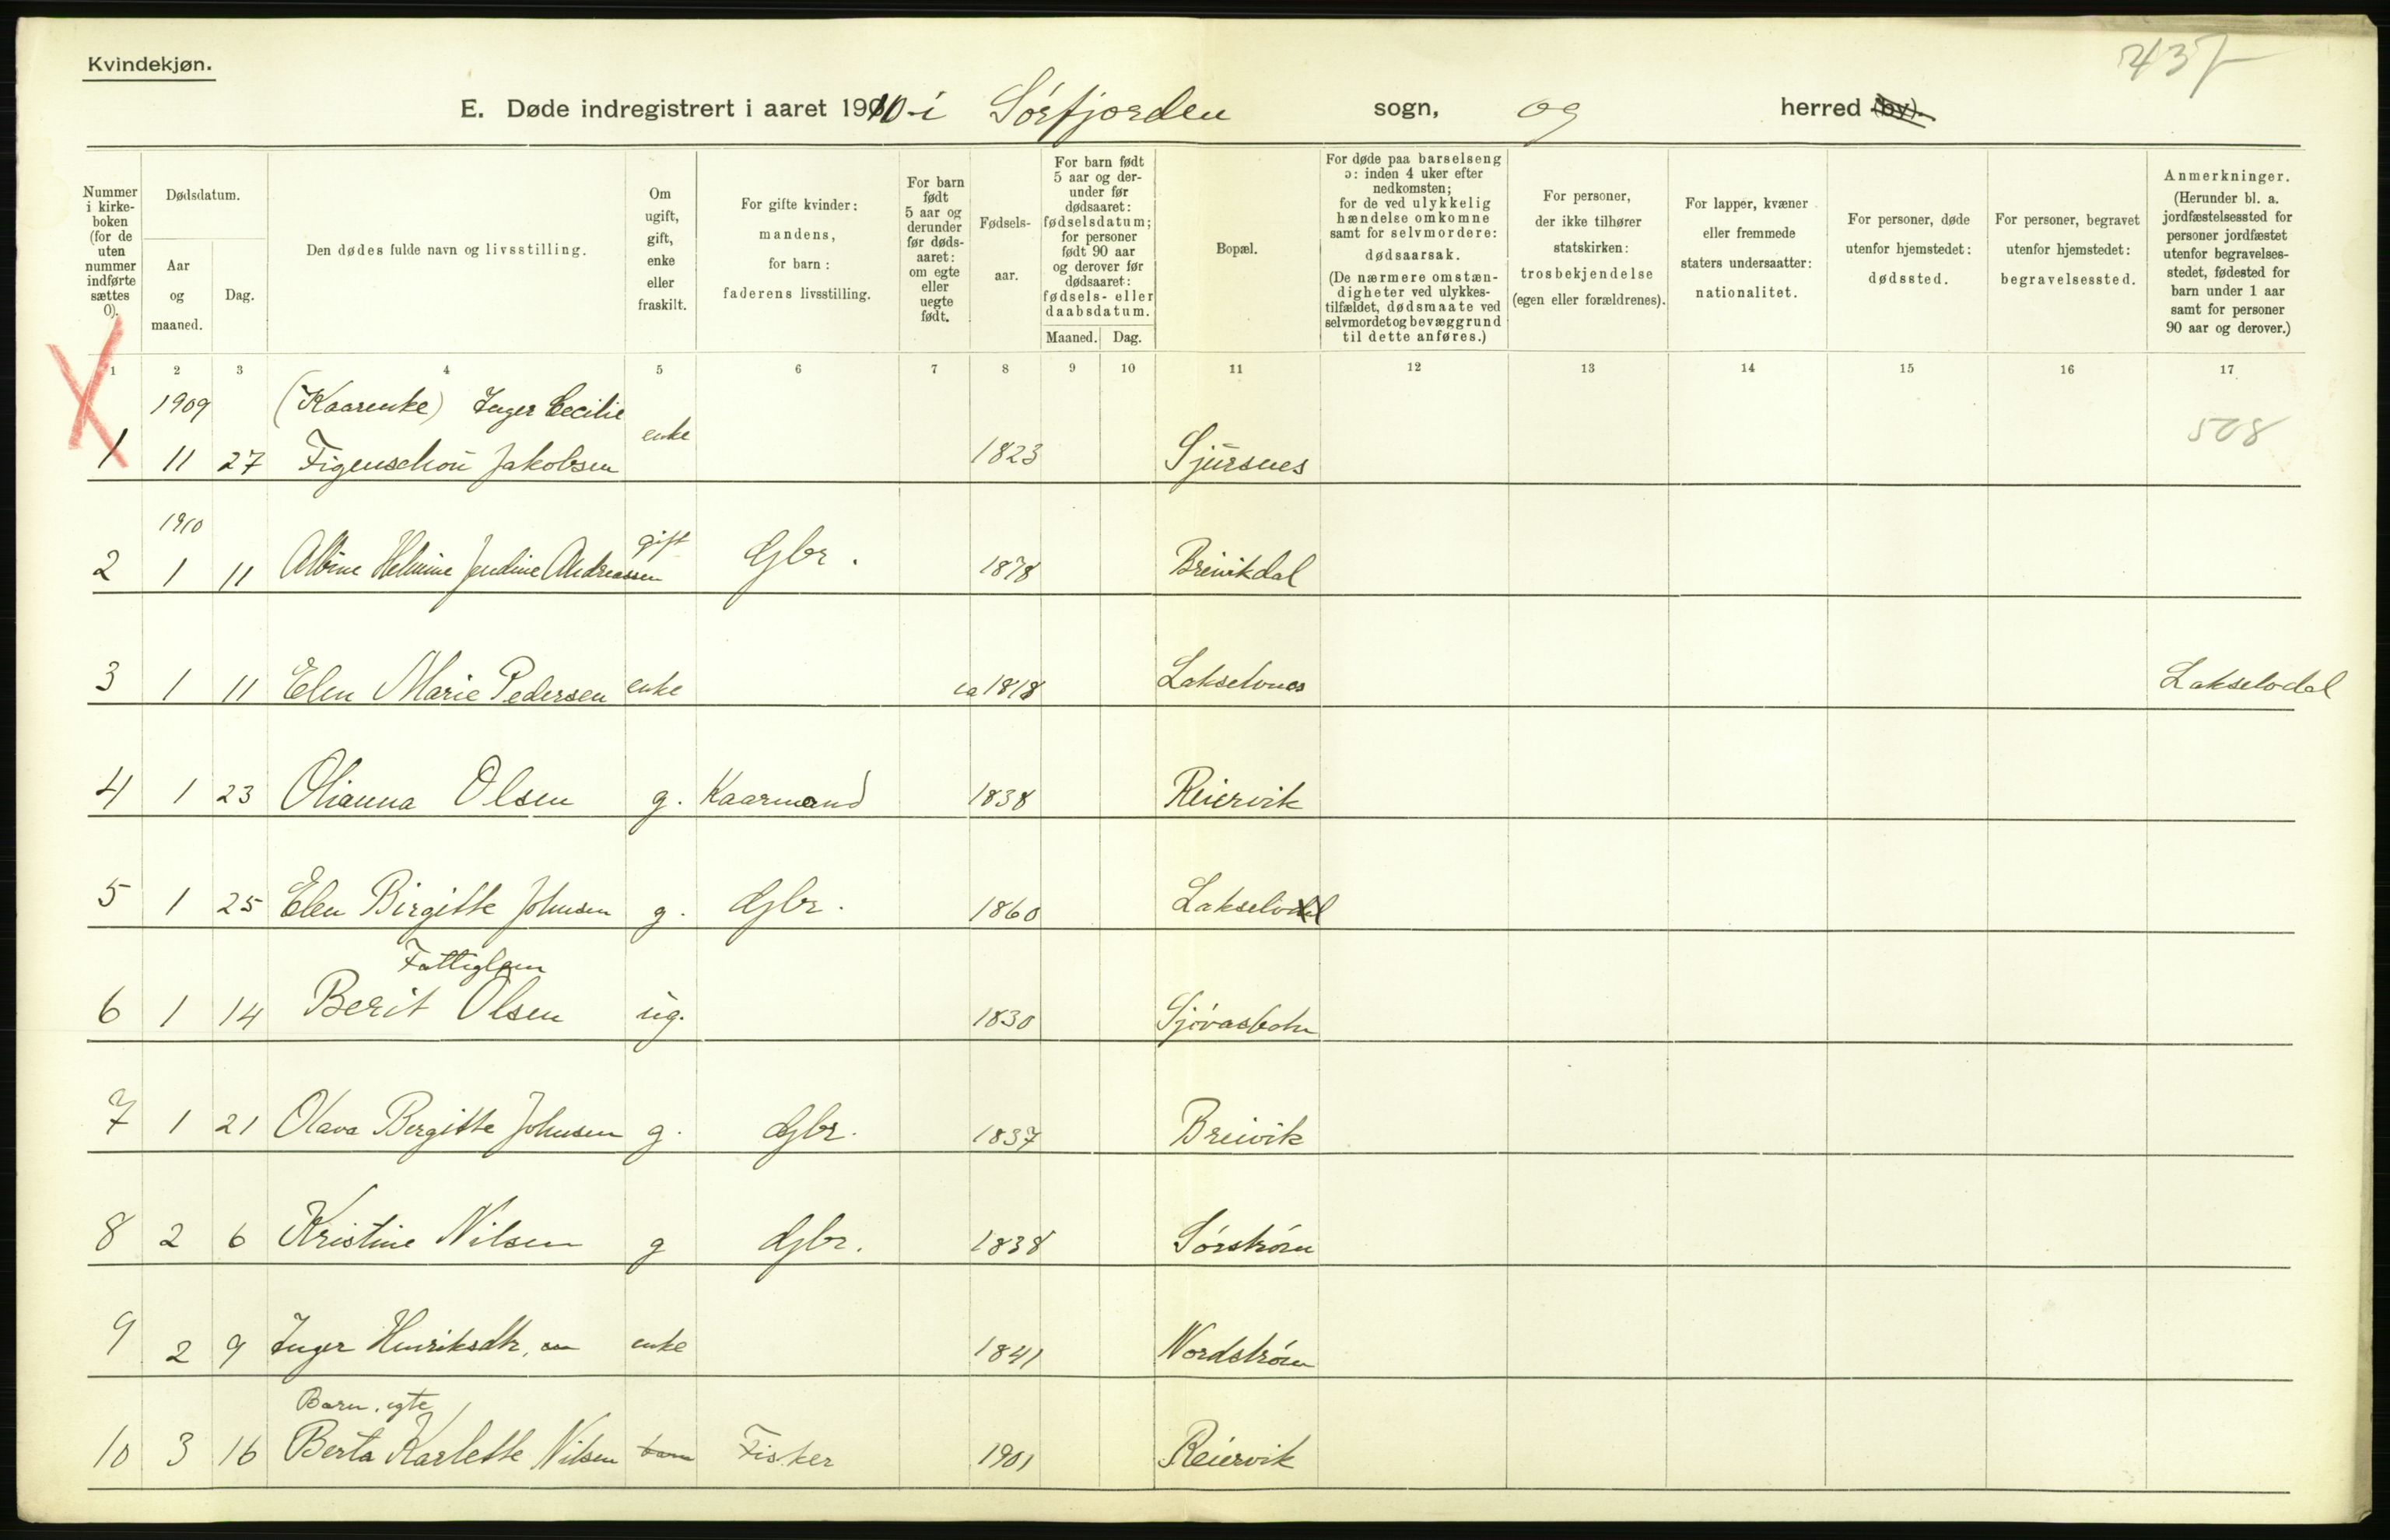 Kvindekjøn.
437
E. Døde indregistrert i aaret 1910 i Sörfjorden sogn, og herred (by).
Nummer i kirkeboken (for de uten nummer indførte sættes 0).
Dødsdatum.
Aar og maaned.
Dag.
Den dødes fulde navn og livsstilling.
Om ugift, gift, enke eller fraskilt.
For gifte kvinder: mandens, for barn: faderens livsstilling.
For barn født 5 aar og derunder før dødsaaret: om egte eller uegte født.
Fødselsaar.
For barn født 5 aar og derunder før dødsaaret: fødselsdatum; for personer født 90 aar og derover før dødsaaret: fødsels- eller daabsdatum.
Maaned. Dag.
Bopæl.
For døde paa barselseng ɔ: inden 4 uker efter nedkomsten; for de ved ulykkelig hændelse omkomne samt for selvmordere: dødsaarsak. (De nærmere omstændigheter ved ulykkestilfældet, dødsmaate ved selvmordet og bevæggrund til dette anføres.)
For personer, der ikke tilhører statskirken: trosbekjendelse (egen eller forældrenes).
For lapper, kvæner eller fremmede staters undersaatter: nationalitet.
For personer, døde utenfor hjemstedet: dødssted.
For personer, begravet utenfor hjemstedet: begravelsessted.
Anmerkninger. (Herunder bl. a. jordfæstelsessted for personer jordfæstet utenfor begravelsesstedet, fødested for barn under 1 aar samt for personer 90 aar og derover.)
1 2 3 4 5 6 7 8 9 10 11 12 13 14 15 16 17
1909 (Kaarenke) Inger Cecilie
1 11 27 Figenschou Jakobsen enke 1823 Sjursnes 508
1910
2 1 11 Albine Helmine Jendine Andreassen gift Gbr. 1878 Breivikdal
3 1 11 Elen Marie Pedersen enke ca 1818 Lakselvnes Lakselvdal
4 1 23 Olianna Olsen g. Kaarmand 1838 Reiervik
5 1 25 Elen Birgitte Johnsen g. Gbr. 1860 Lakselvdal
Fattiglem
6 1 14 Berit Olsen ug. 1830 Sjövasbotn
7 1 21 Olava Bergitte Johnsen g. Gbr. 1837 Breivik
8 2 6 Kristine Nilsen g Gbr. 1838 Sörström
9 2 9 Inger Henriksdtr, enke 1841 Nordström
Barn, egte
10 3 16 Berta Karlette Nilsen barn Fisker 1901 Reiervik